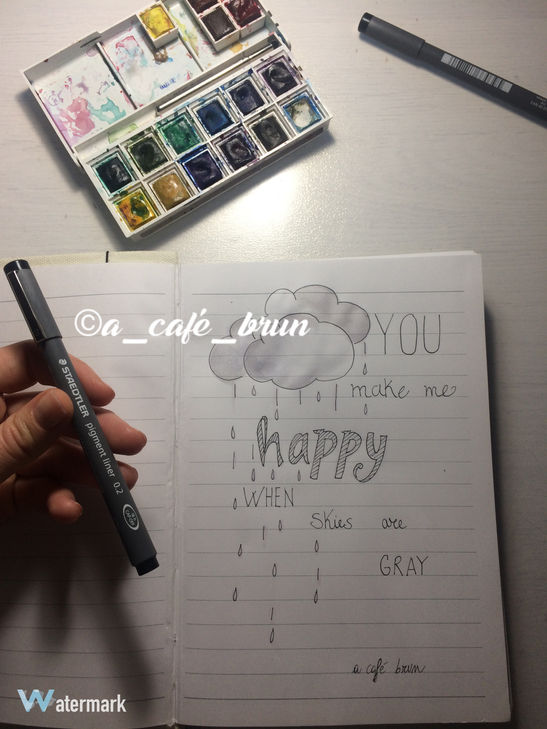 ©a_café_brun
YOU
make me
happy
WHEN
Skies are
GRAY
a café brun
STAEDTLER pigment liner 0.2
Watermark